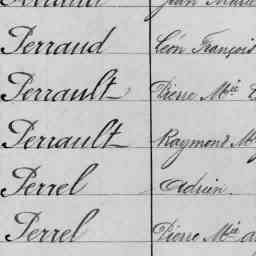 Perraud Léon François
Perrault Pierre Mie
Perrault Raymond M
Perrel Adrien.
Perrel Pierre Mie